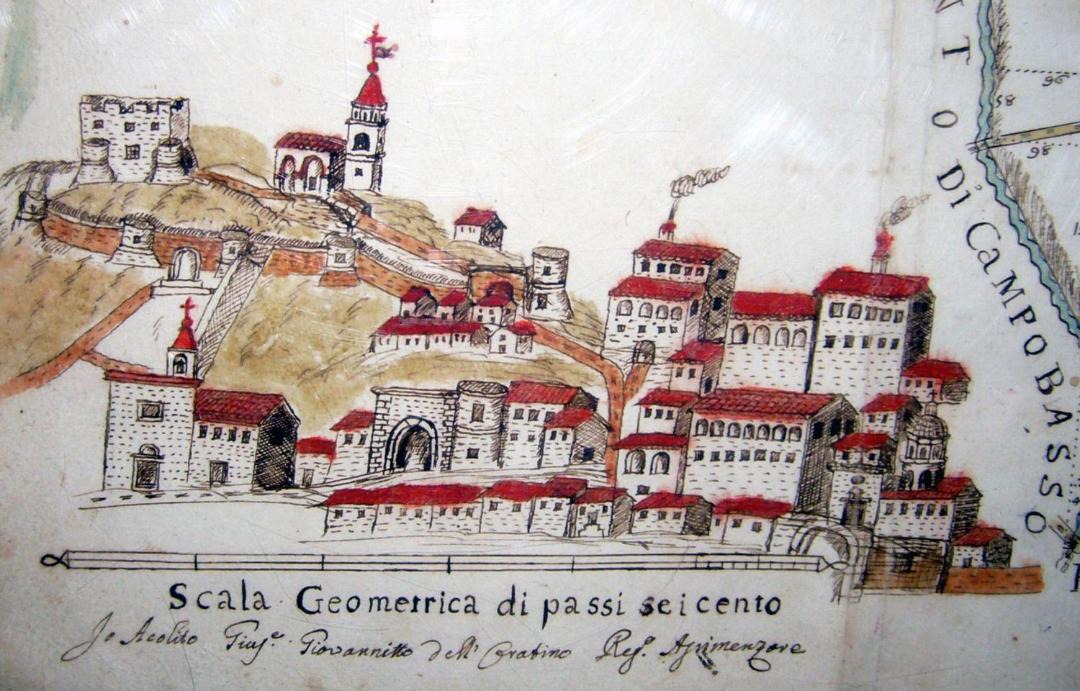 NTO Di CaMPOBASSO
58
96
98
Scala Geometrica di passi seicento
Jo Acolito Giuse. Giovannitto dell' Oratino Reg. Agrimenzore